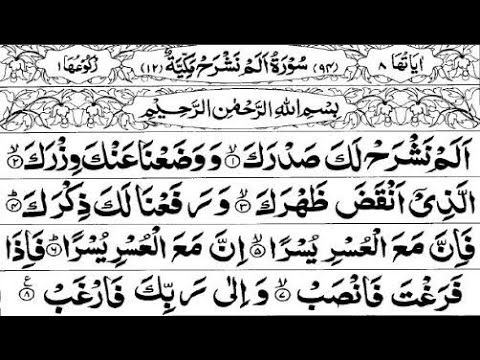 اٰيَاتُهَا ٨ (٩٤) سُوْرَةُ اَلَمْ نَشْرَحْ مَكِّيَّةٌ (١٢) رُكُوْعُهَا ١
بِسْمِ اللهِ الرَّحْمٰنِ الرَّحِيْمِ
اَلَمْ نَشْرَحْ لَكَ صَدْرَكَ ۙ﴿١﴾ وَوَضَعْنَا عَنْكَ وِزْرَكَ ۙ﴿٢﴾
الَّذِيْٓ اَنْقَضَ ظَهْرَكَ ۙ﴿٣﴾ وَرَفَعْنَا لَكَ ذِكْرَكَ ؕ﴿٤﴾
فَاِنَّ مَعَ الْعُسْرِ يُسْرًا ۙ﴿٥﴾ اِنَّ مَعَ الْعُسْرِ يُسْرًا ؕ﴿٦﴾ فَاِذَا
فَرَغْتَ فَانْصَبْ ۙ﴿٧﴾ وَاِلٰى رَبِّكَ فَارْغَبْ ﴿٨﴾ۧ